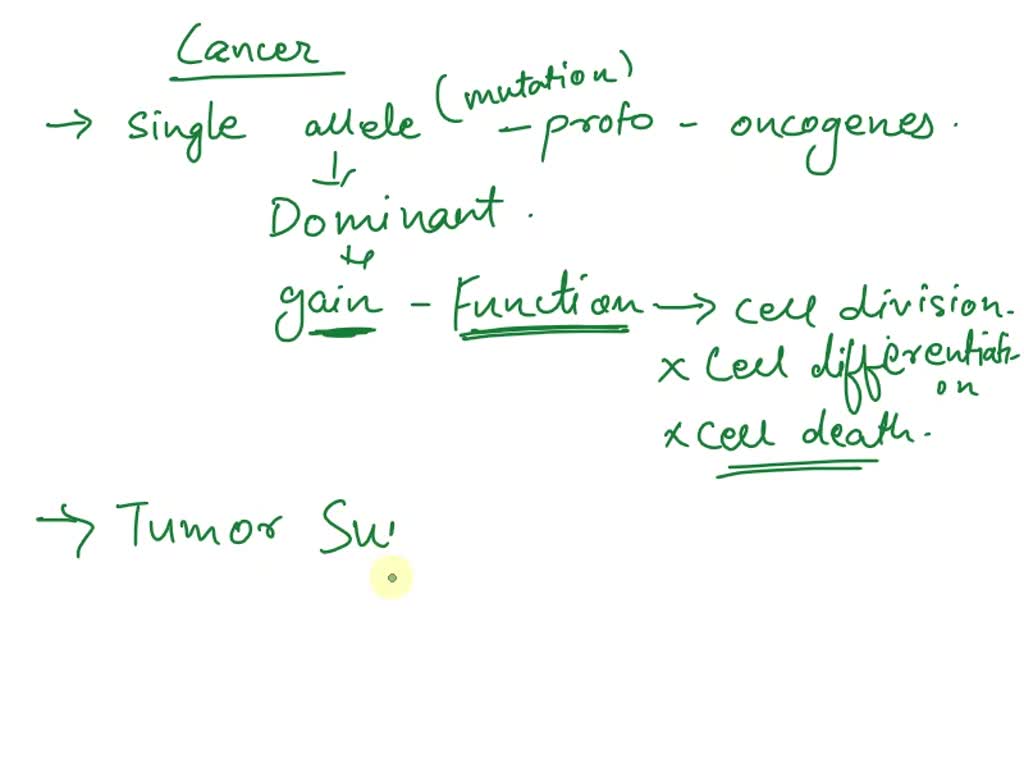 Cancer
→ single allele (mutation) - proto - oncogenes.
Dominant.
gain - Function → cell division.
x Cell differentiati-
on
x cell death.
→ Tumor Su